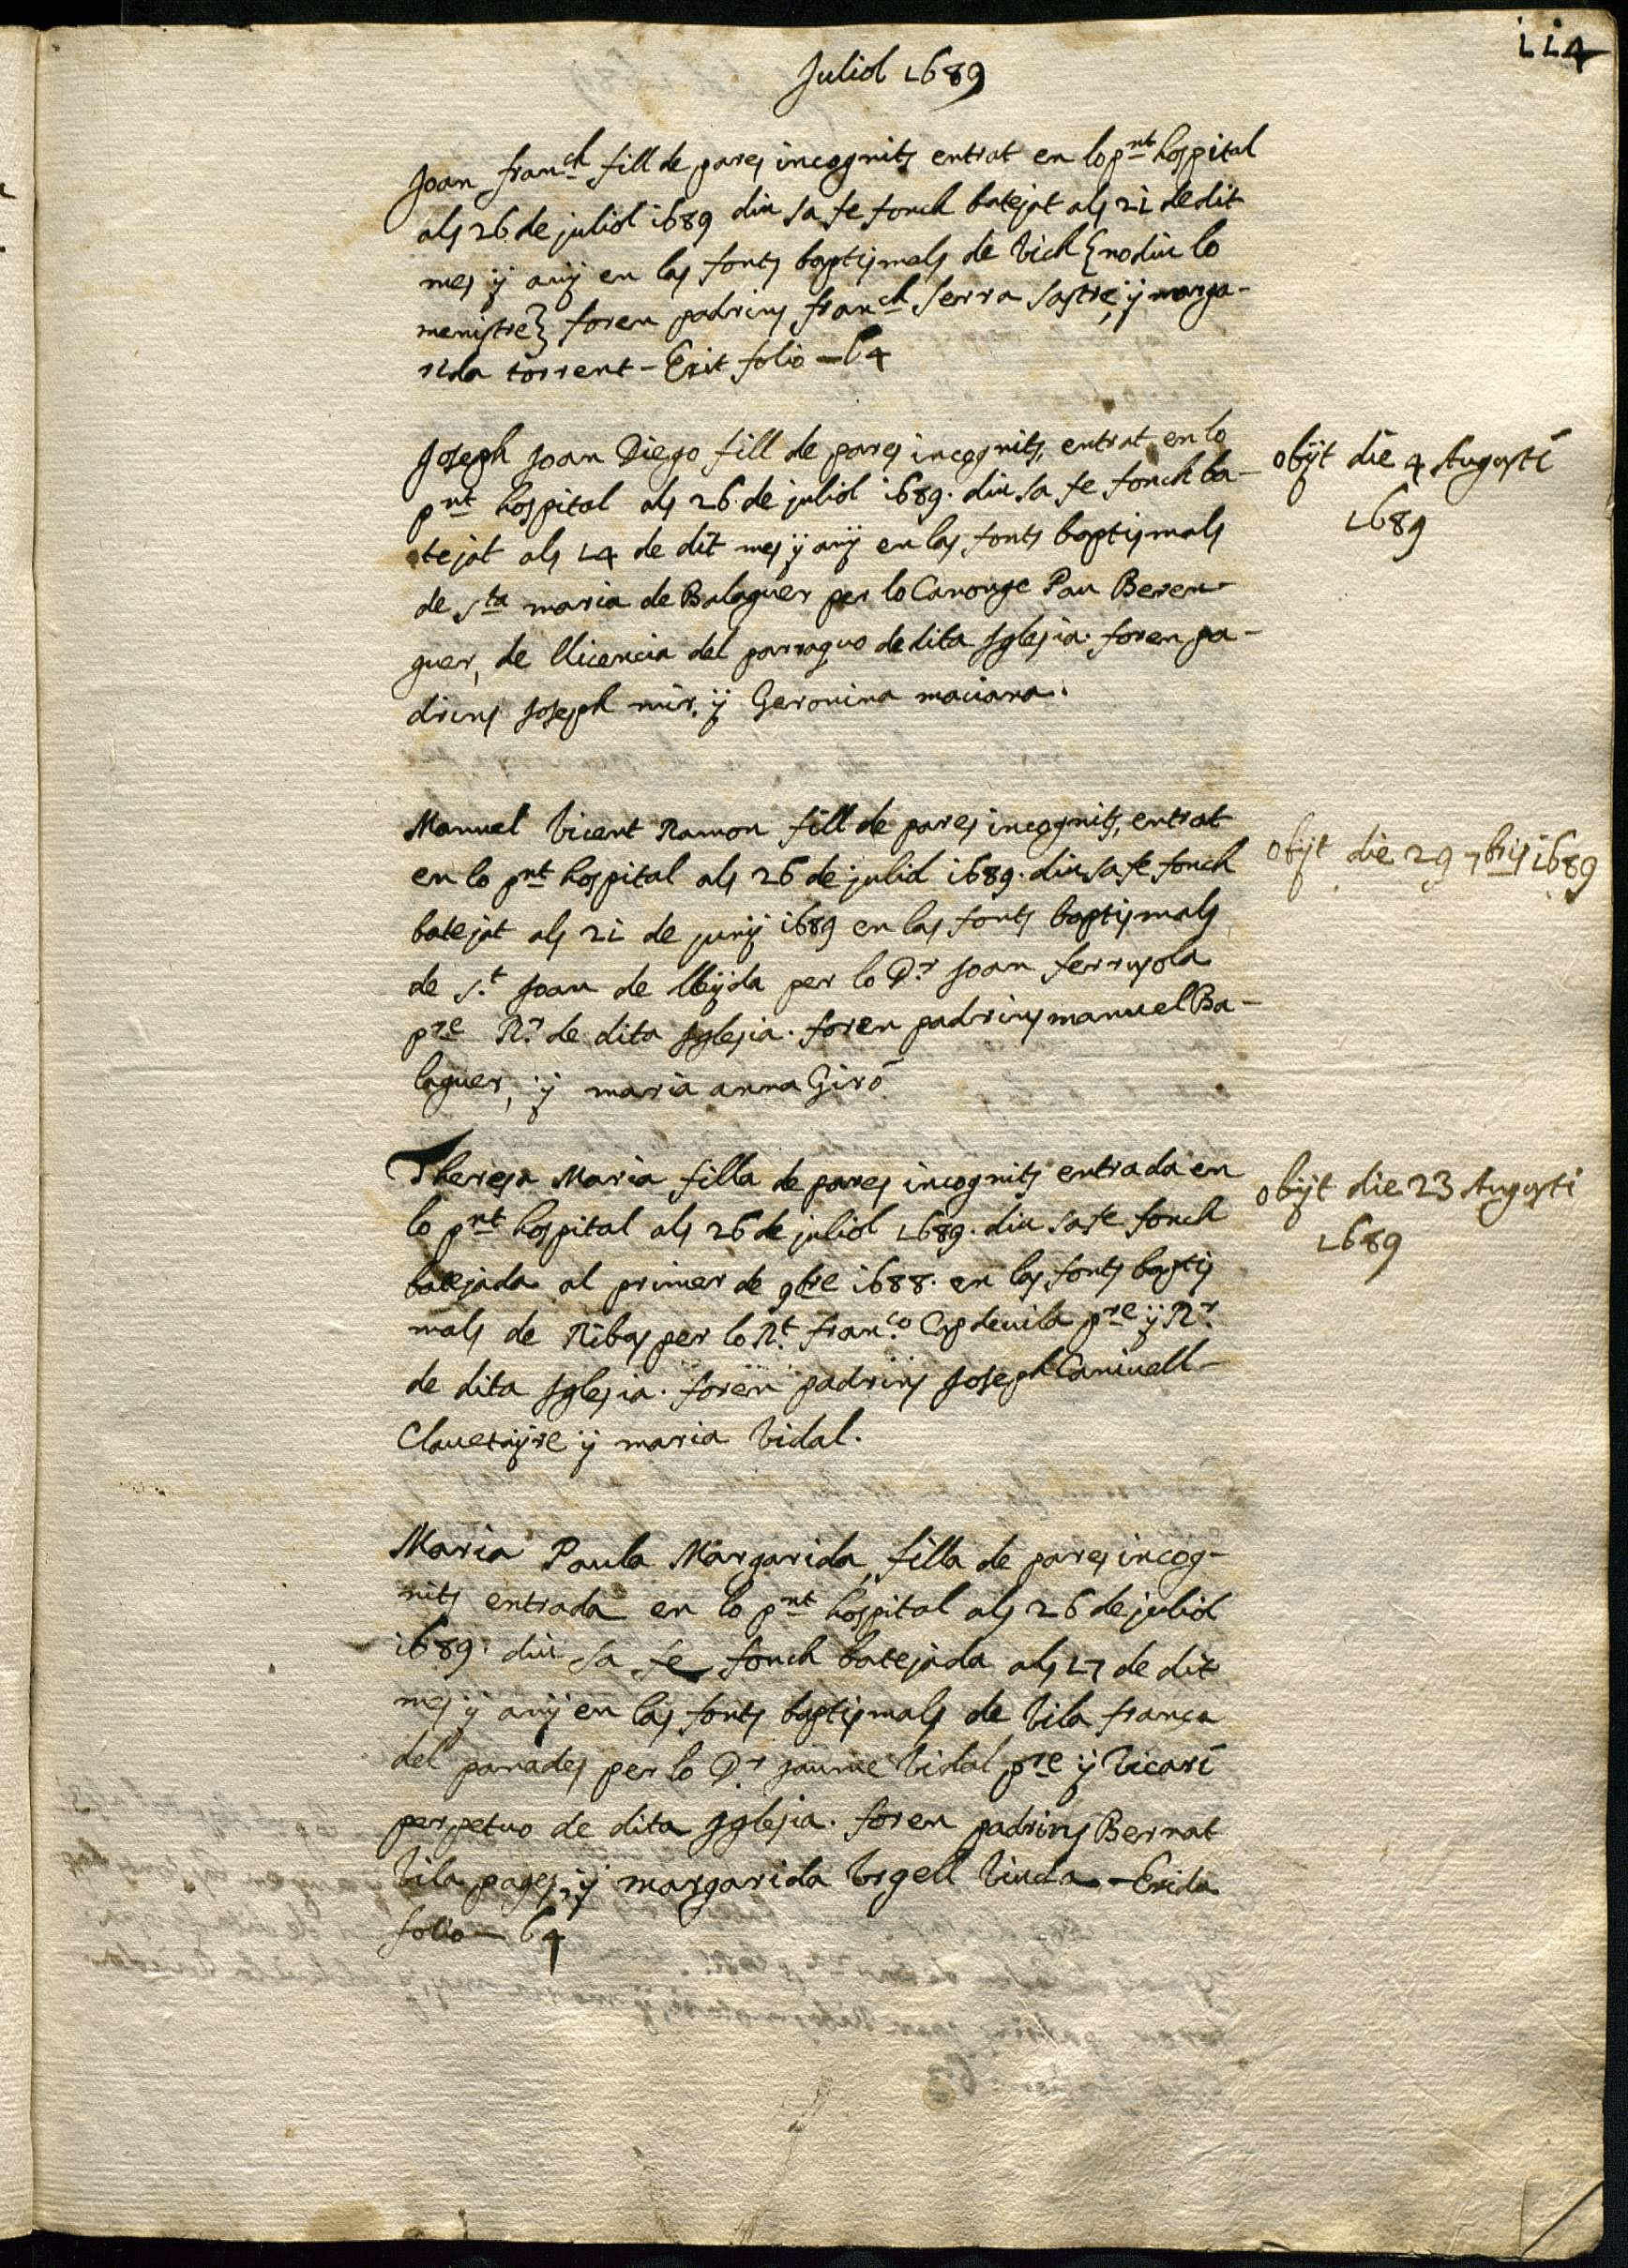 114
Juliol 1689
Joan Fran^ch fill de pares incognits entrat en lo p^nt hospital
als 26 de juliol 1689 diu sa fe fonch batejat als 21 de dit
mes ÿ anÿ en las fonts baptismals de Vich {no diu lo
menistre} foren padrins fran^ch serra sastre, ÿ marga-
rida torrent - Exit folio - 64
Joseph Joan Diego fill de pares incognits, entrat en lo
p^nt hospital als 26 de juliol 1689. diu sa fe fonch ba-
tejat als 14 de dit mes ÿ anÿ en las fonts baptismals
de s^ta maria de Balaguer per lo Canonge Pau Beren-
guer, de llicencia del parraquo de dita Iglesia. foren pa-
drins Joseph mir, ÿ Geronima maciana.
obÿt die 4 Augusti
1689
Manuel Vicent Ramon fill de pares incognits, entrat
en lo p^nt hospital als 26 de juliol 1689. diu sa fe fonch
batejat als 21 de junÿ 1689 en las fonts baptismals
de s.^t Joan de lleÿda per lo D.^r Joan ferrusola
p^re R.^r de dita Iglesia. foren padrins manuel Ba-
laguer, ÿ maria anna Giró
obÿt die 29 7bris 1689
Theresa Maria filla de pares incognits entrada en
lo p^nt hospital als 26 de juliol 1689. diu sa fe fonch
batejada al primer de 9bre 1688. en las fonts baptis
mals de Ribas per lo R.^t fran.^co Capdeuila p^re ÿ R^r.
de dita Iglesia. foren padrins Joseph Caniuell
Clauetaÿre ÿ maria Vidal.
obÿt die 23 Augusti
1689
Maria Paula Margarida, filla de pares incog-
nits entrada en lo p^nt hospital als 26 de juliol
1689. diu sa fe fonch batejada als 17 de dit
mes ÿ anÿ en las fonts baptismals de Vila franca
del panades per lo D.^r Jaume Vidal p^re ÿ Vicari
perpetuo de dita Iglesia. foren padrins Bernat
Vila pages, ÿ margarida Vrgell Viuda - Exida
folio - 64